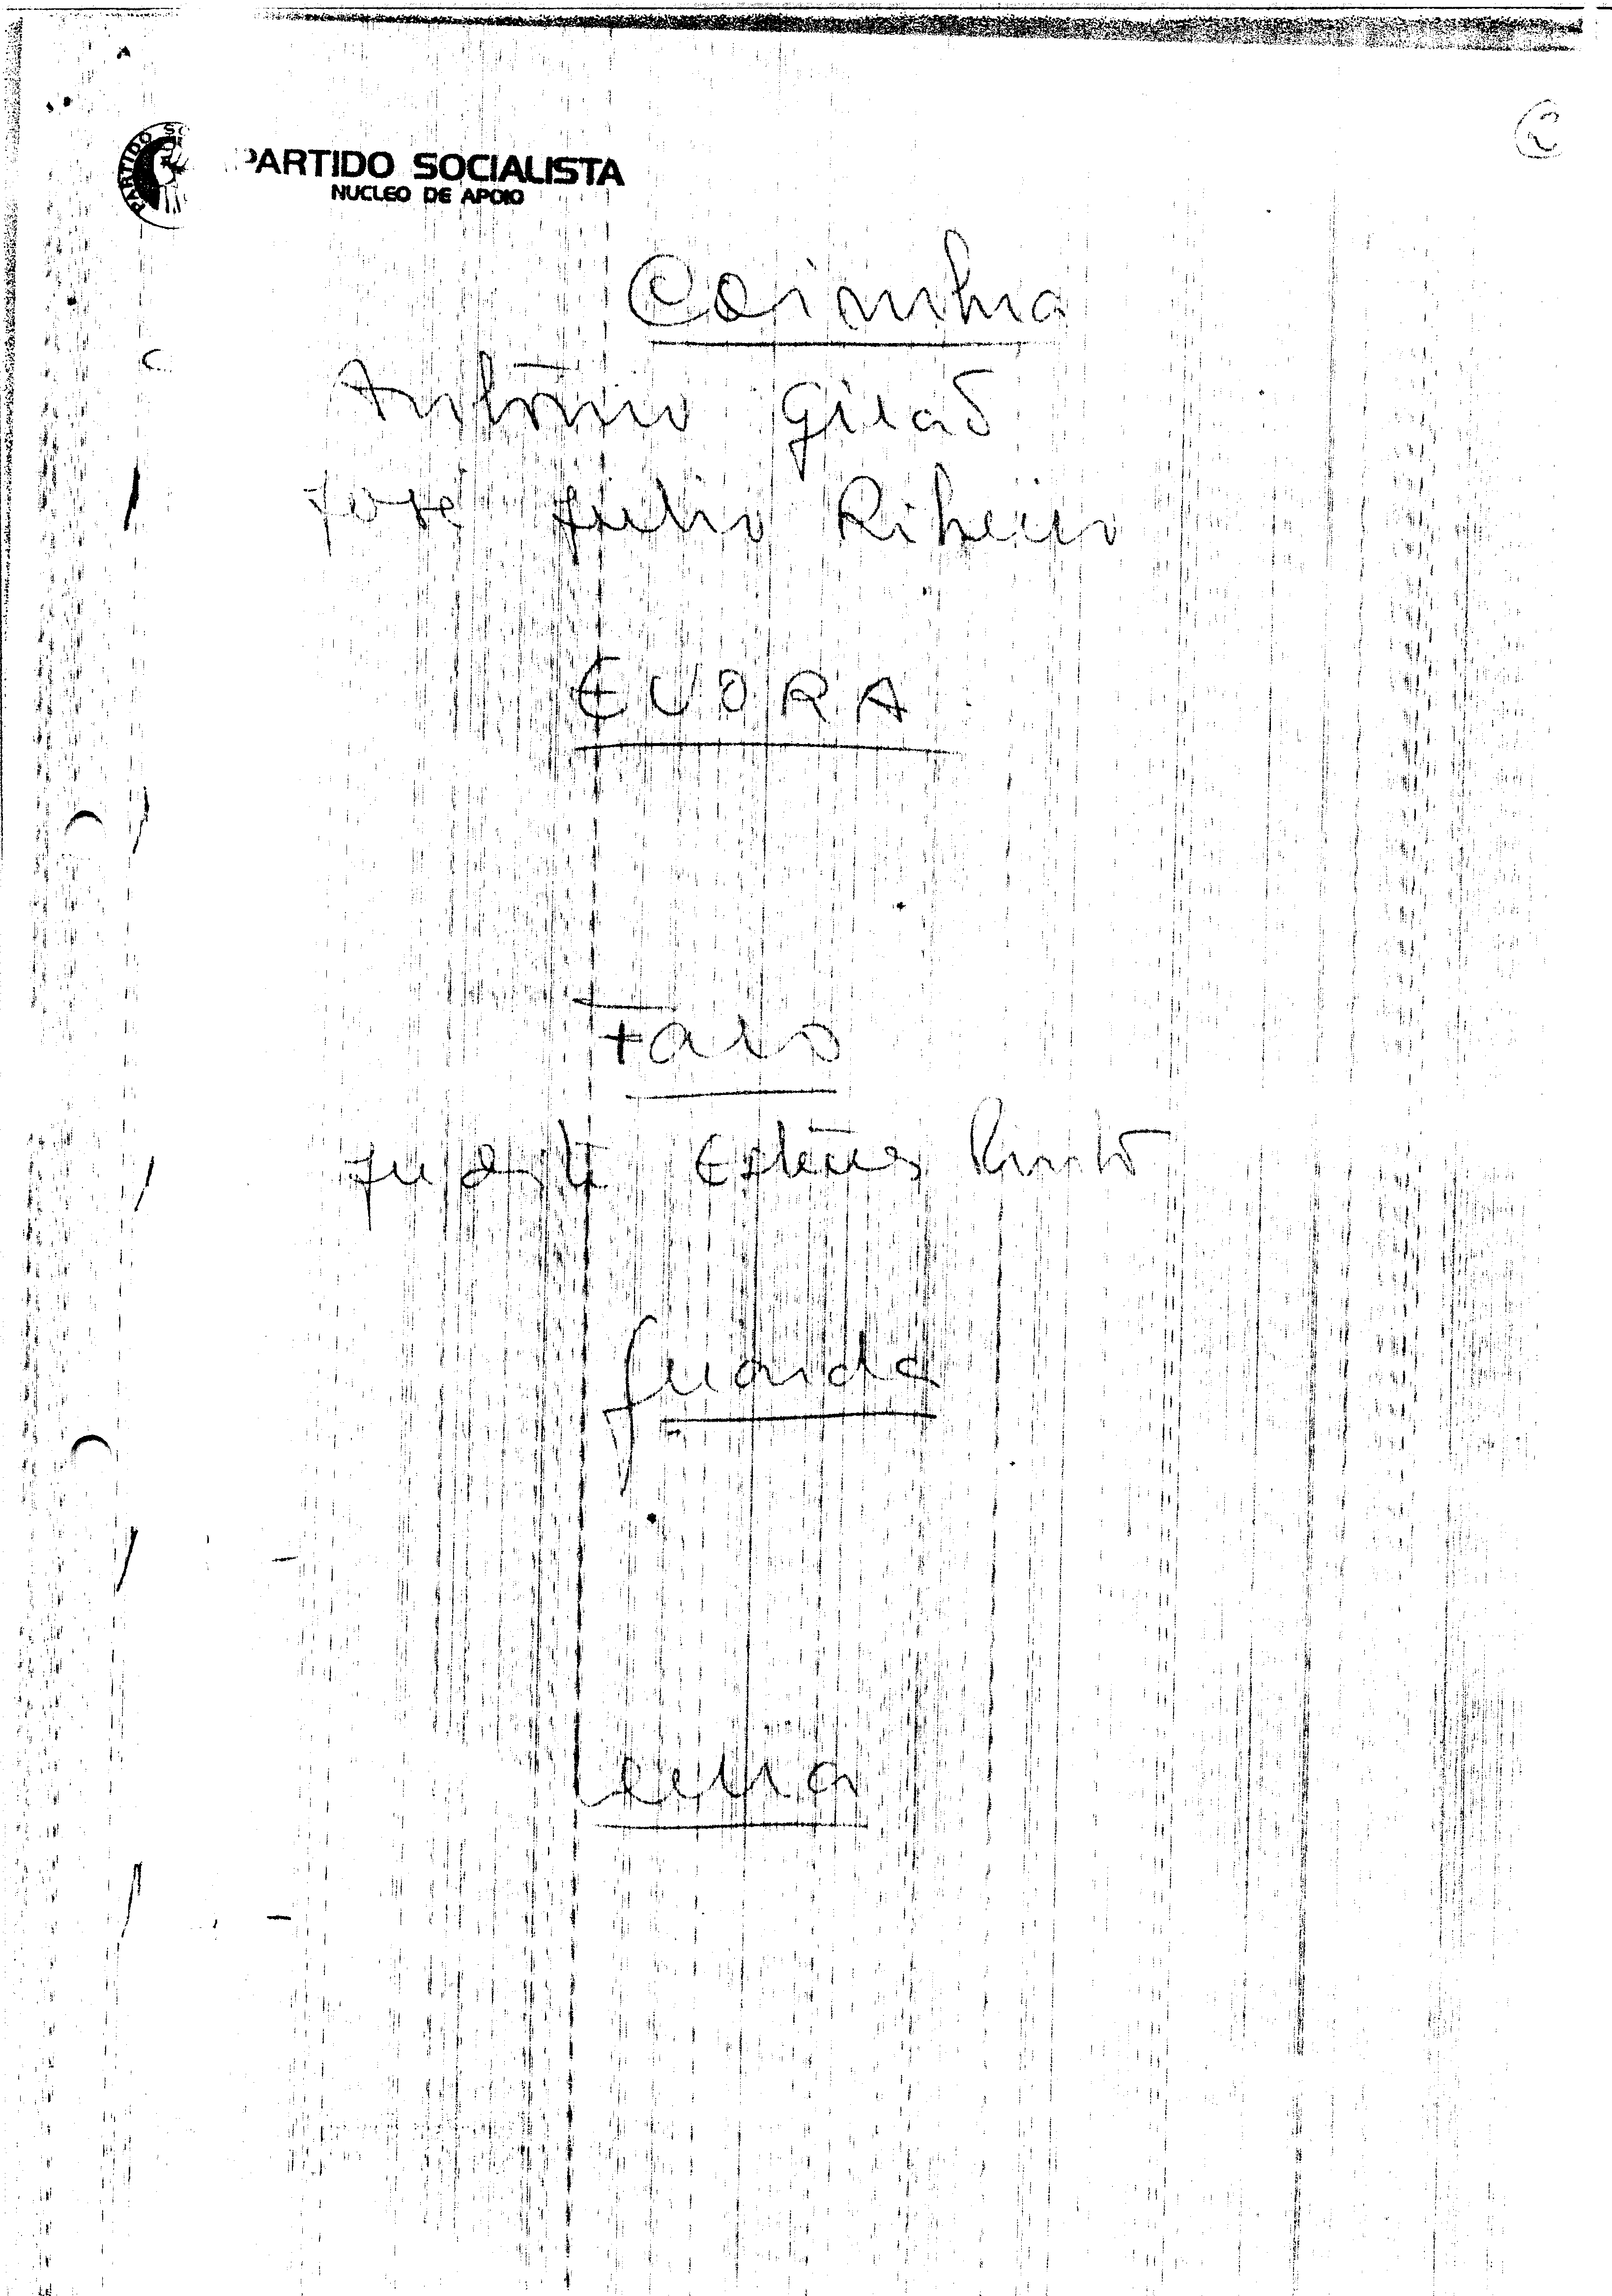 PARTIDO SOCIALISTA
NUCLEO DE APOIO
2
Coimbra
António Girão
José Júlio Ribeiro
EVORA
Faro
Esteves Pinto
Guarda
Leiria